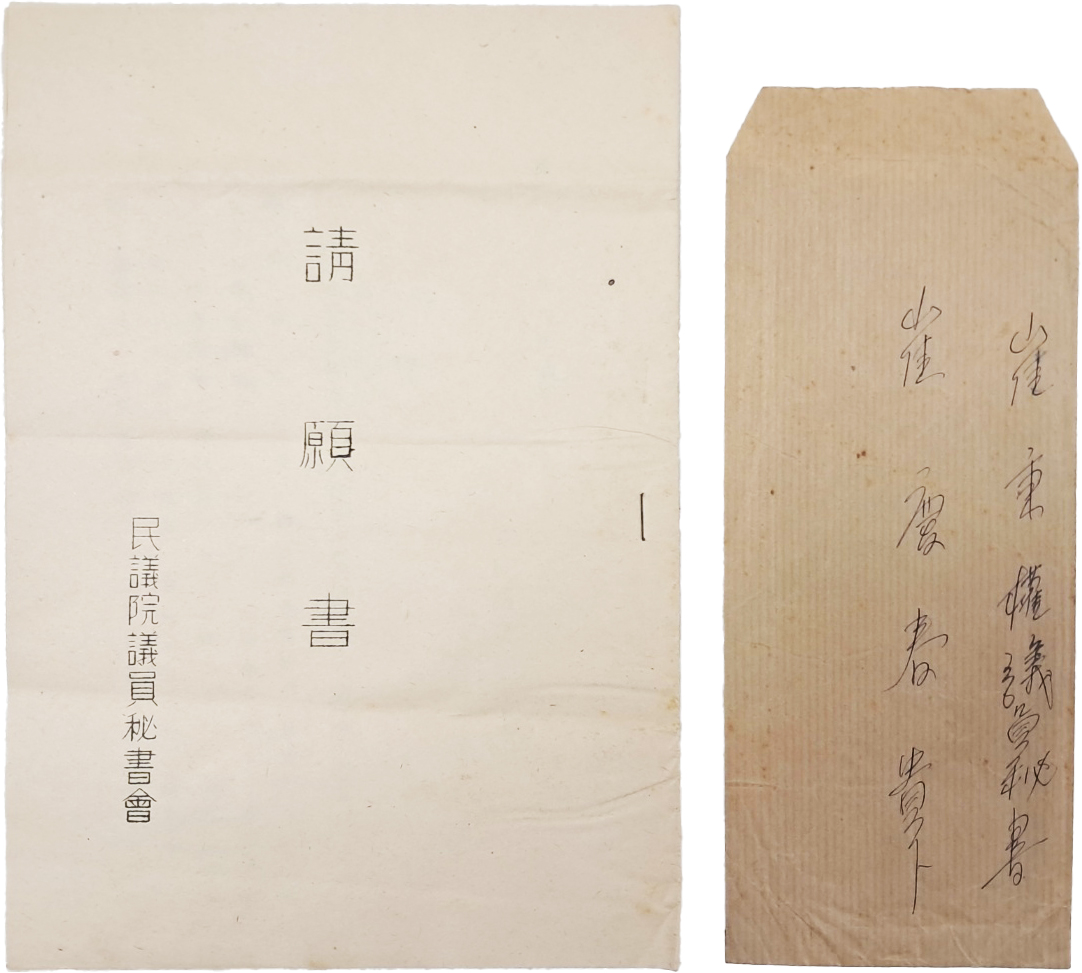 請願書
民議院議員秘書會
崔秉權議員秘書
崔慶春貴下